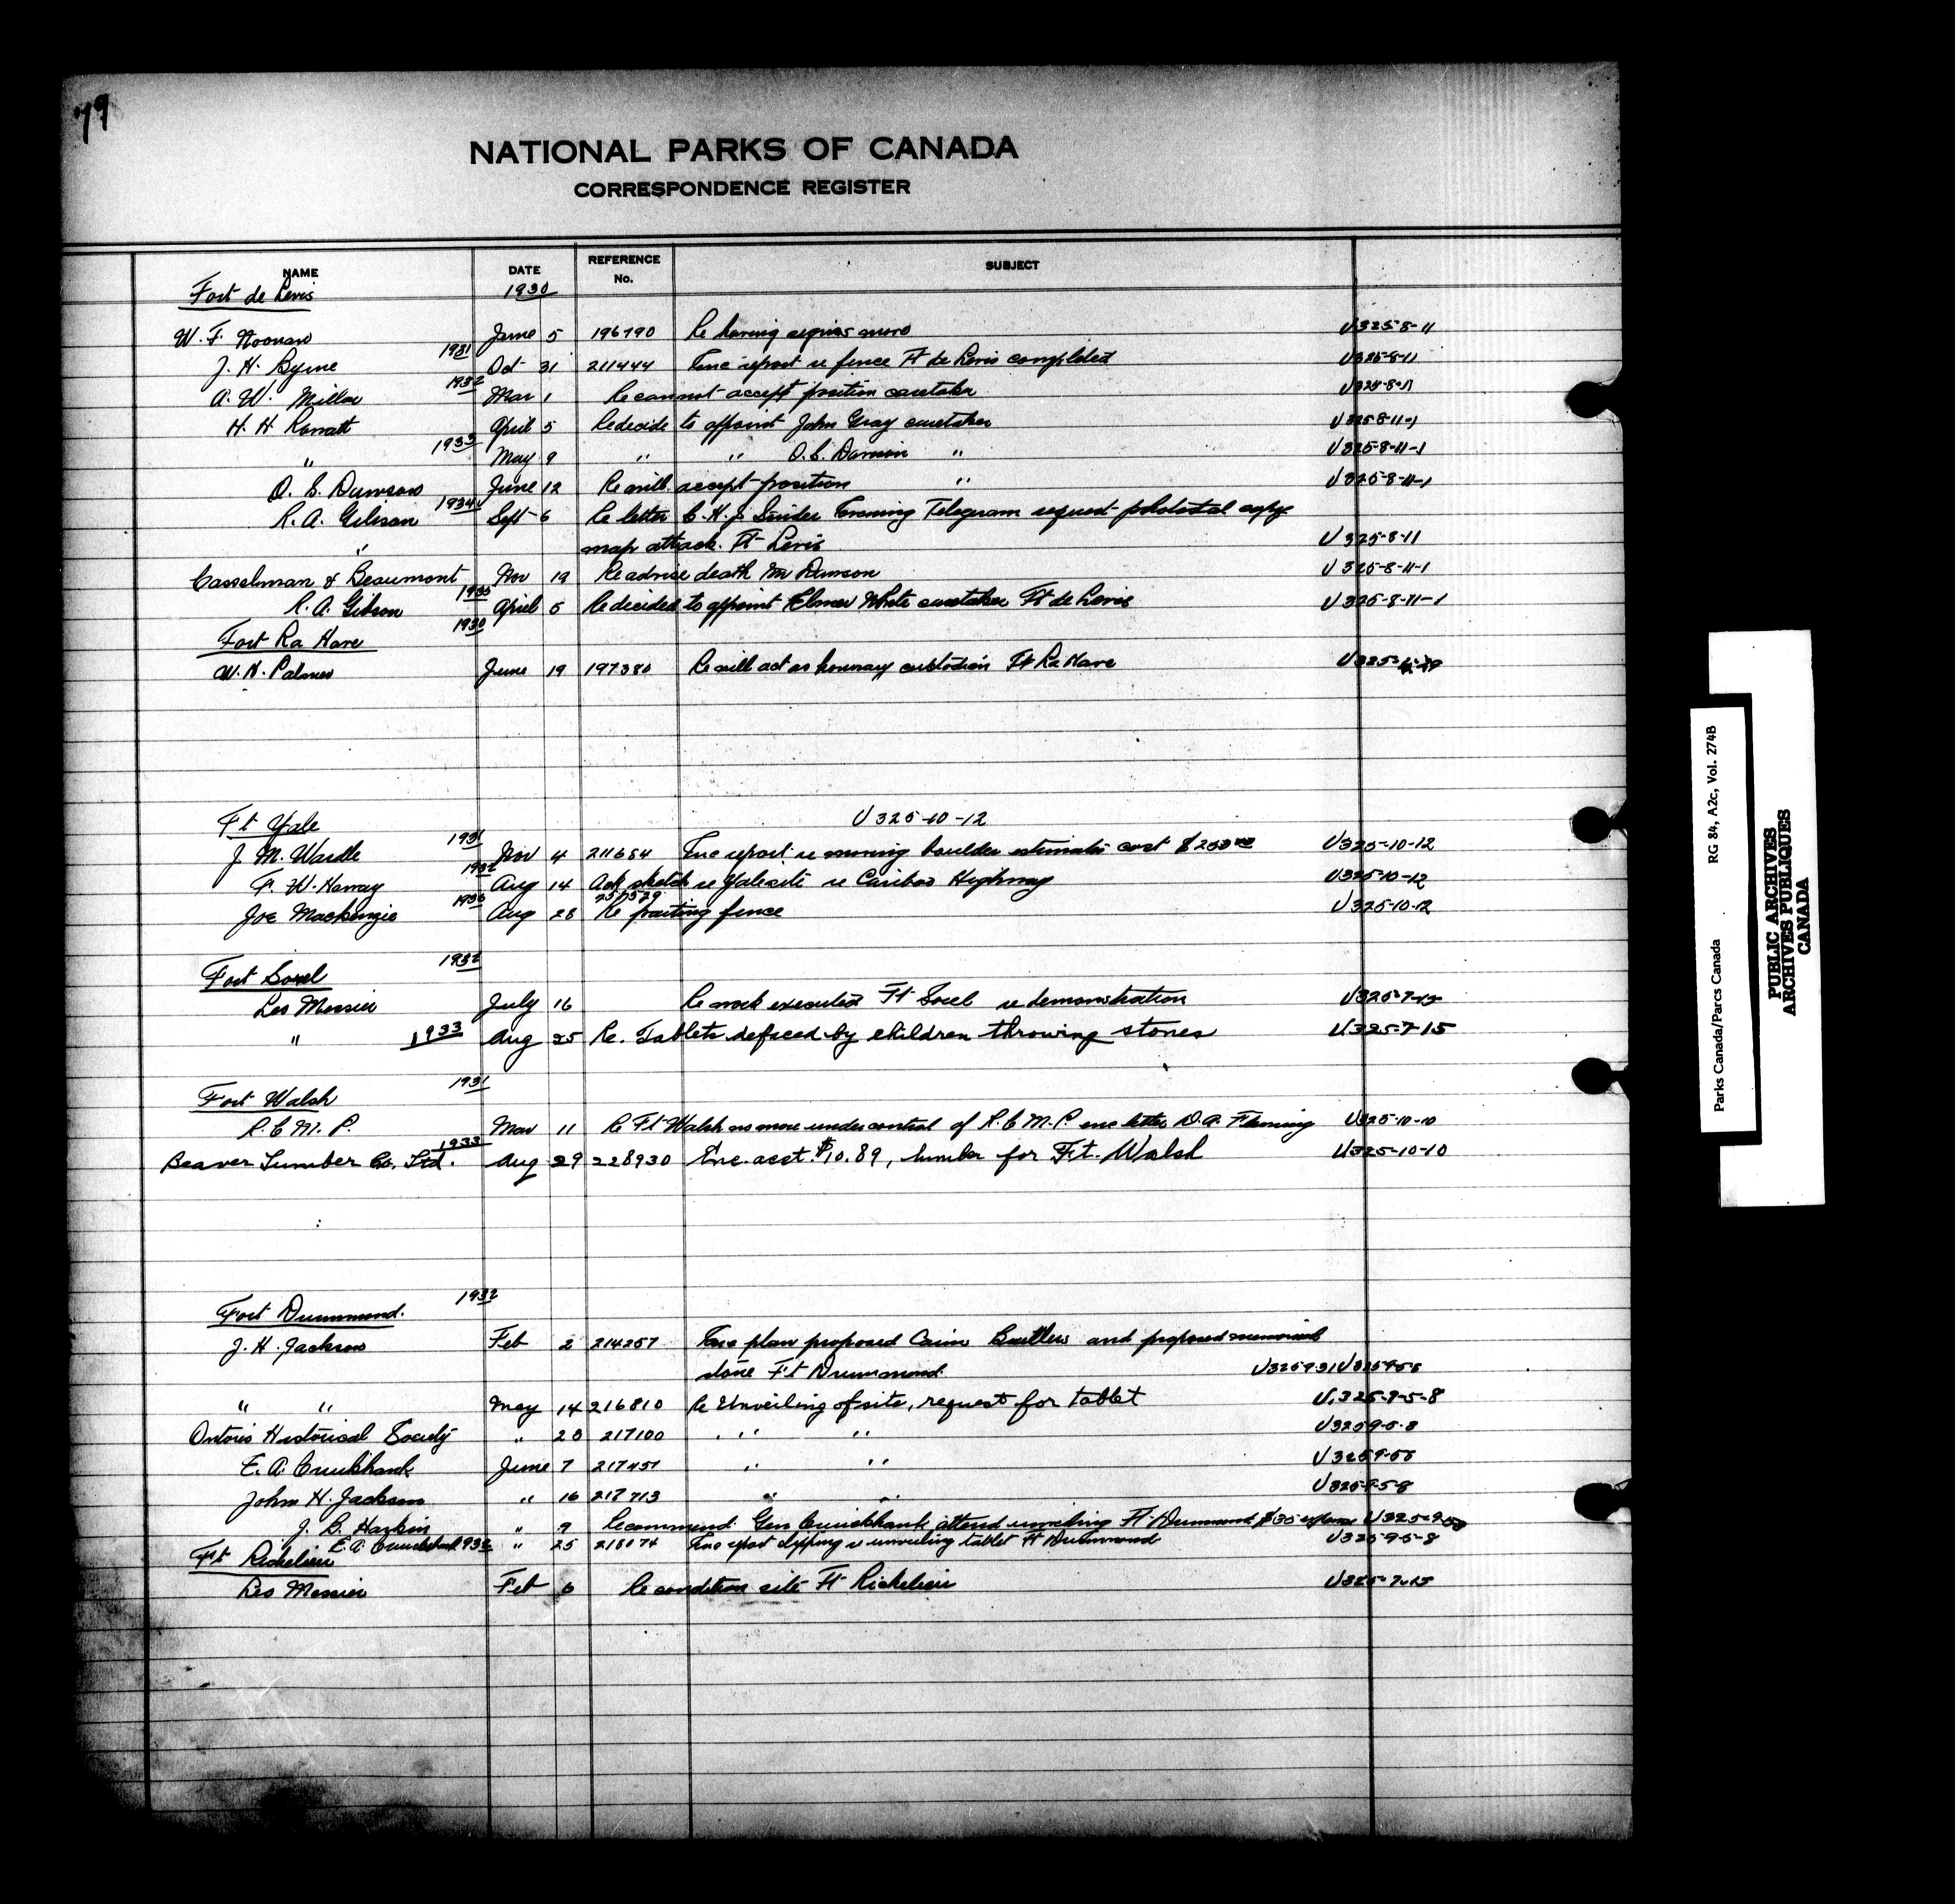 79
NATIONAL PARKS OF CANADA
CORRESPONDENCE REGISTER
NAME DATE REFERENCE No. SUBJECT
Fort de Levis 1930
W. F. Noonan June 5 196790 Re having U325-8-11
1931
J. H. Byrne Oct 31 211444 Enc report re fence Ft de Levis completed U325-8-11
1932
A. W. Millar Mar 1 Re cannot accept position caretaker
H. H. April 5 Re decide to appoint John Gray caretaker U325-8-11-1
1933
" May 9 " " O.S. Dawson " U325-8-11-1
O. S. Dawson June 12 Re will accept position " U325-8-11-1
1934
R. A. Gibson Sept 6 Re letter C. H. J. Snider Evening Telegram request photostat copy
" map attack Ft Levis U325-8-11
Casselman & Beaumont Nov 19 Re advise death Mr Dawson U325-8-11-1
1935
R. A. Gibson April 5 Re decided to appoint Elmer White caretaker Ft de Levis U325-8-11-1
1930
Fort La Have
W. H. Palmer June 19 197380 Re will act as honorary custodian Ft La Have
Ft Yale U325-10-12
1931
J. M. Wardle Nov 4 211654 Enc report re moving boulder estimates cost $250.00 U325-10-12
1932
F. W. Howay Aug 14 Ack sketch re Yale site re Cariboo Highway U325-10-12
Joe Mackenzie Aug 28 Re painting fence U325-10-12
1932
Fort Sorel
Les Messier July 16 Re work executed Ft Sorel re demonstration
" 1933 Aug 25 Re. Tablets defaced by children throwing stones U325-7-15
1931
Fort Walsh
R. C. M. P. Mar 11 Re Ft Walsh no more under control of R.C.M.P. enc letter D.A. Fleming U325-10-10
1933
Beaver Lumber Co. Ltd. Aug 29 228930 Enc. acct. $10.89, lumber for Ft. Walsh U325-10-10
1932
Fort Drummond.
J. H. Jackson Feb 2 214257 Enc plan proposed Cairn Butlers and proposed memorial
stone Ft Drummond
" " May 14 216810 Re Unveiling of site, request for tablet U325-9-5-8
Ontario Historical Society " 28 217100 " " U325-9-5-8
E. A. Cruikshank June 7 217457 " " U325-9-58
John H. Jackson " 16 217713 " " U325-9-5-8
J. B. Harkin " 9 Recommend Gen Cruikshank attend unveiling Ft Drummond $35 expenses
E. A. Cruikshank " 25 218174 Enc report clipping re unveiling tablet Ft Drummond U325-9-5-8
Ft Richelieu 1932
Les Messier Feb 6 Re condition site Ft Richelieu U325-7-15
Parks Canada/Parcs Canada RG 84, A2c, Vol. 274B
PUBLIC ARCHIVES
ARCHIVES PUBLIQUES
CANADA